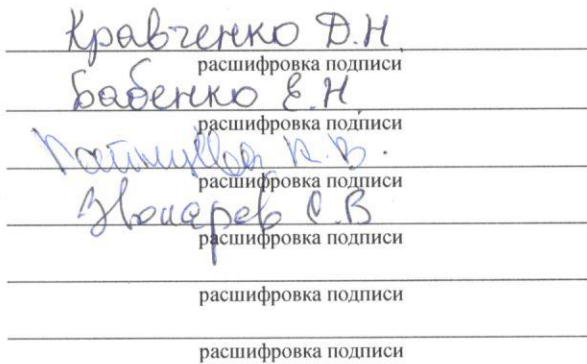 Кравченко Д.Н.
расшифровка подписи
Бабенко Е.Н.
расшифровка подписи
К.В.
расшифровка подписи
Звонарев С.В
расшифровка подписи
расшифровка подписи
расшифровка подписи